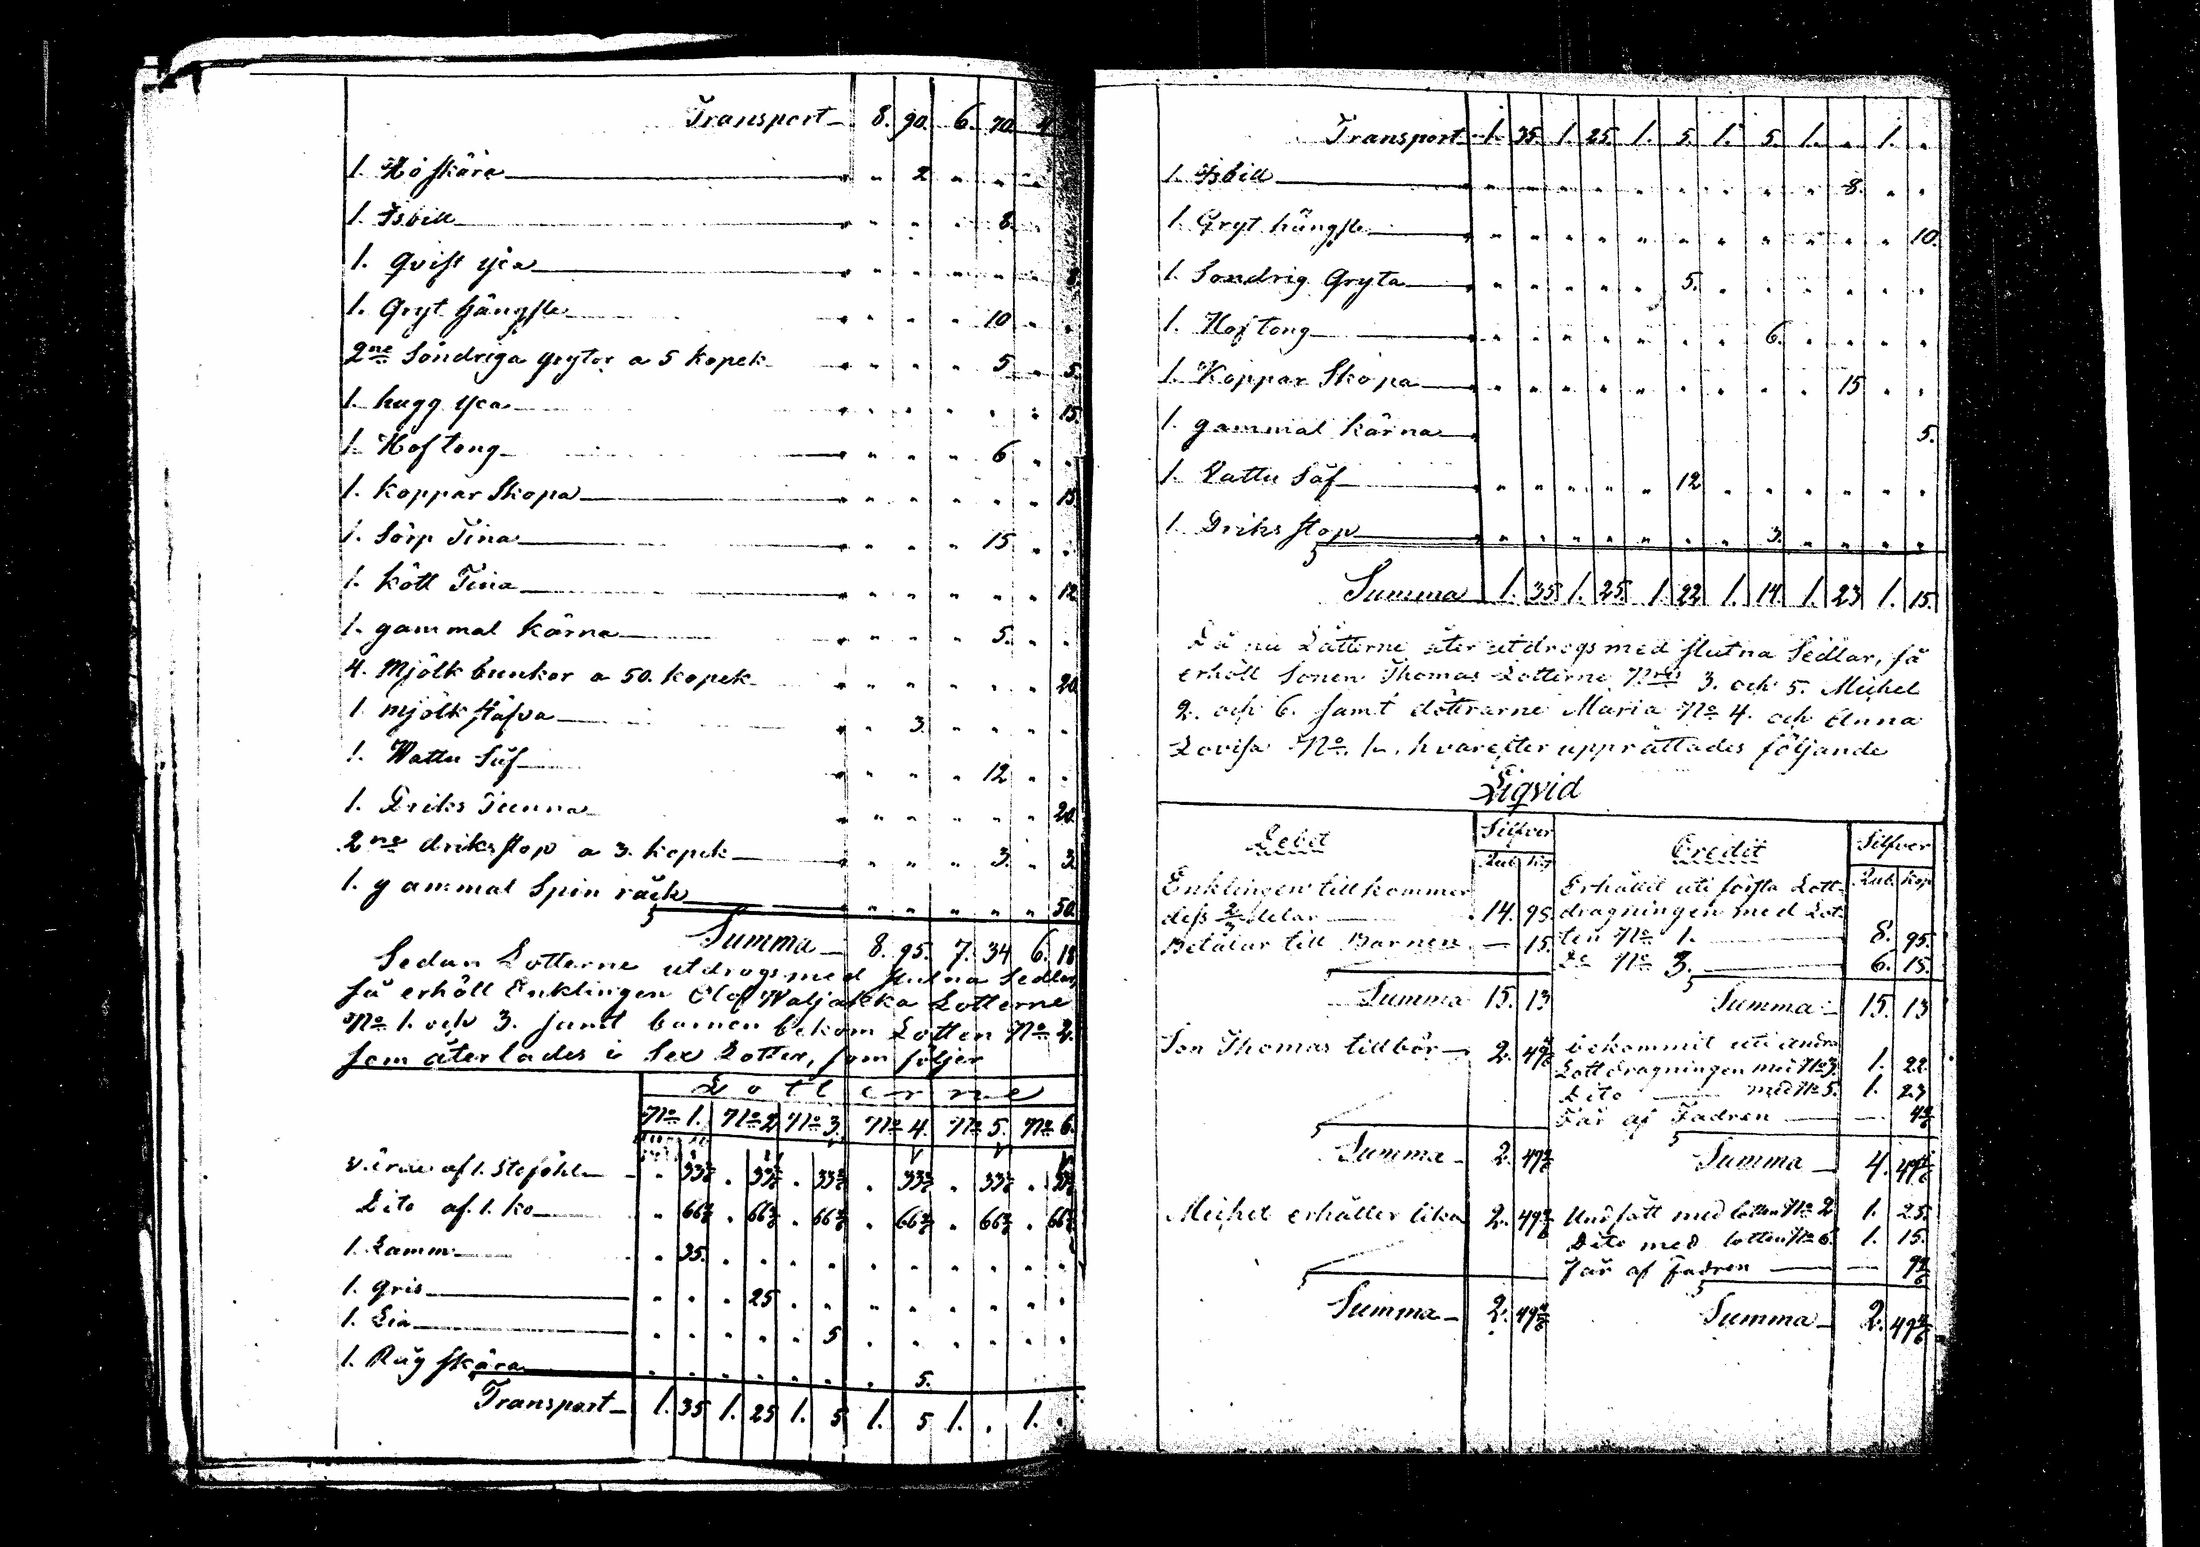 Transport 8. 90. 6. 70. 4
1. Höskära " " 2 " " "
1. Isbill " " " " 8. "
1. Qvist yxa " " " " " 8
1. Gryt hängsle " " " " 10 " "
2ne Söndriga grytor a 5 kopek " " " " 5 " 5.
1. hugg yxa " " " " " " 15.
1. Hoftong " " " " 6 " "
1. koppar Skopa " " " " " " 15
1. Sörp Tina " " " " 15 " "
1. kött Tina " " " " " " 12
1. gammal kärna " " " " 5. " "
4. Mjölk bunkor a 50. kopek " " " " " " 20
1. mjölk stäfva " " 3. " " " "
1. Wattu Såf " " " " 12 " "
1. Driks Tunna " " " " " " 20.
2ne driksstop a 3. kopek " " " " 3. " 3
1. gammal Spin räck " " " " " " 50
Summa 8. 95. 7. 34 6. 18
Sedan Lotterne utdrogs med slutna Sedlar
så erhöll Enklingen Olof Waljakka Lotterne
No 1. och 3. samt barnen bekom Lotten No 2.
som återlades i Sex Lotter, som följer
Lotterne
No 1. No 2 No 3. No 4. No 5. No 6.
Värde af 1. Stoföhl " 33 2/6 " 33 2/6 " 33 2/6 " 33 2/6 " 33 2/6 " 33 2/6
Dito af 1. ko " 66 4/6 " 66 4/6 " 66 4/6 " 66 4/6 " 66 4/6 " 66 4/6
1. Lamm " 35. " " " " " " " " " "
1. gris " " " 25 " " " " " " " "
1. Lia " " " " " 5 " " " " " "
1. Rüg skära " " " " " " " 5.
Transport 1. 35 1. 25 1. 5 1. 5 1. " 1. "
Transport 1. 35. 1. 25. 1. 5. 1. 5. 1. " 1. "
1. Isbill " " " " " " " " " 8. " "
1. Gryt hängsle " " " " " " " " " " " 10.
1. Söndrig Gryta " " " " " 5. " " " " " "
1. Hoftong " " " " " " " 6. " " " "
1. Koppar Skopa " " " " " " " " " 15 " "
1. gammal kärna 5.
1. Vattu Såf " " " " " 12 " " " " " "
1. Driks stop " " " " " " " 3. " " " "
Summa 1. 35 1. 25. 1. 22 1. 14. 1. 23 1. 15.
Då nu Lotterne åter utdrogs med slutna Sedlar, så
erhöll Sonen Thomas Lotterne Nris 3. och 5. Michel
2. och 6. samt döttrarne Maria No 4. och Anna
Lovisa No. 1. hvarefter upprättades följande
Liqvid
Debet Silfver Credit Silfver
Rub Kop Rub. Kop
Enklingen tillkommer
dess 2/3 delar 14. 95.
Betalar till Barnen — 15.
Summa 15. 13
Erhållit uti första Lott-
dragningen med Lot-
ten No 1. 8. 95.
Do No 3. 6. 15.
Summa 15. 13
Son Thomas tillbör 2. 49 4/6
Summa 2. 49 4/6
bekommit uti andra
Lottdragningen med No 3. 1. 22.
Dito med No 5. 1. 23
Får af Fadren — 4 4/6
Summa 4. 49 4/6
Michel erhåller lika 2. 49 4/6
Summa 2. 49 4/6
Undfått med lotten No 2 1. 25.
Dito med lotten No 6. 1. 15.
Får af fadren — 9 4/6
Summa 2. 49 4/6